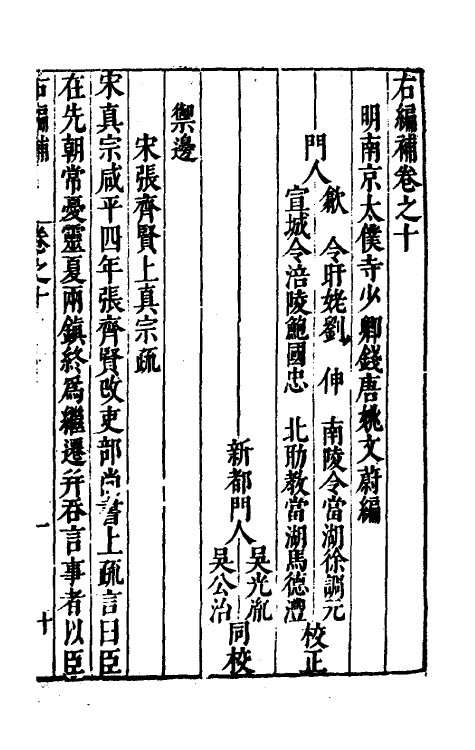 右編補卷之十
明南京太僕寺少卿錢唐姚文蔚編
門人
歙 令盱姥劉 伸 南陵令當湖徐調元
宣城令涪陵鮑國忠 北肋教當湖馬德灃
校正
新都門人
吳光胤
吳公治
同校
禦邊
宋張齊賢上真宗疏
宋真宗咸平四年張齊賢改吏部尚書上疏言曰臣
在先朝常憂靈夏兩鎮終為繼遷并吞言事者以臣
右編補 卷之十 一 十